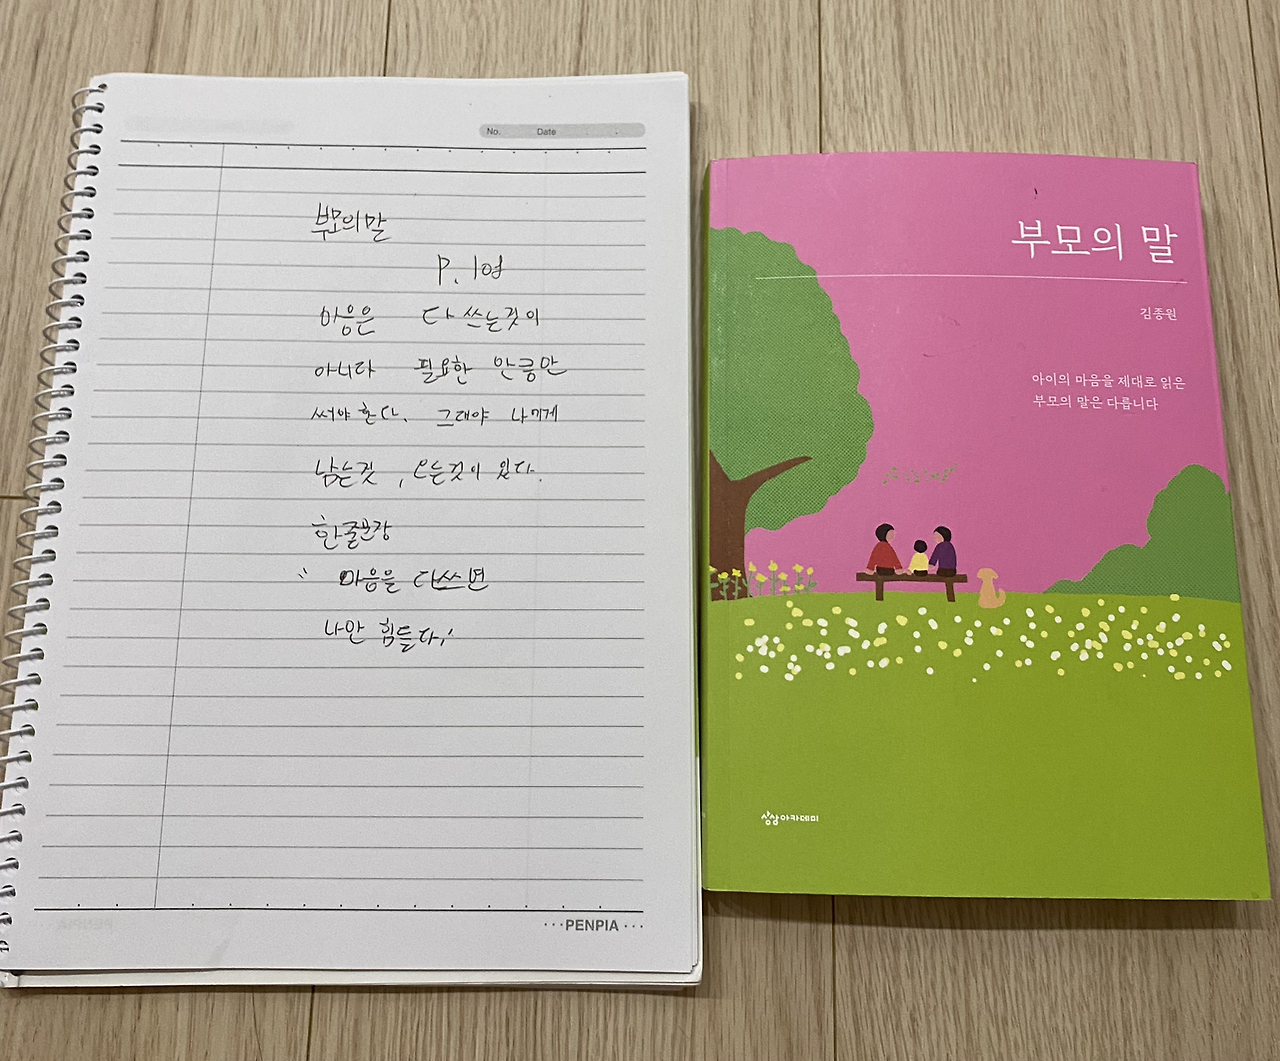 No. Date
부모의말
마음은 다 쓰는것이
아니다 필요한 만큼만
써야 한다. 그래야 나에게
남는것, 오는것이 있다.
한줄문장
" 마음을 다쓰면
나만 힘들다."
···PENPIA···
부모의 말
김종원
아이의 마음을 제대로 읽은
부모의 말은 다릅니다
상상아카데미